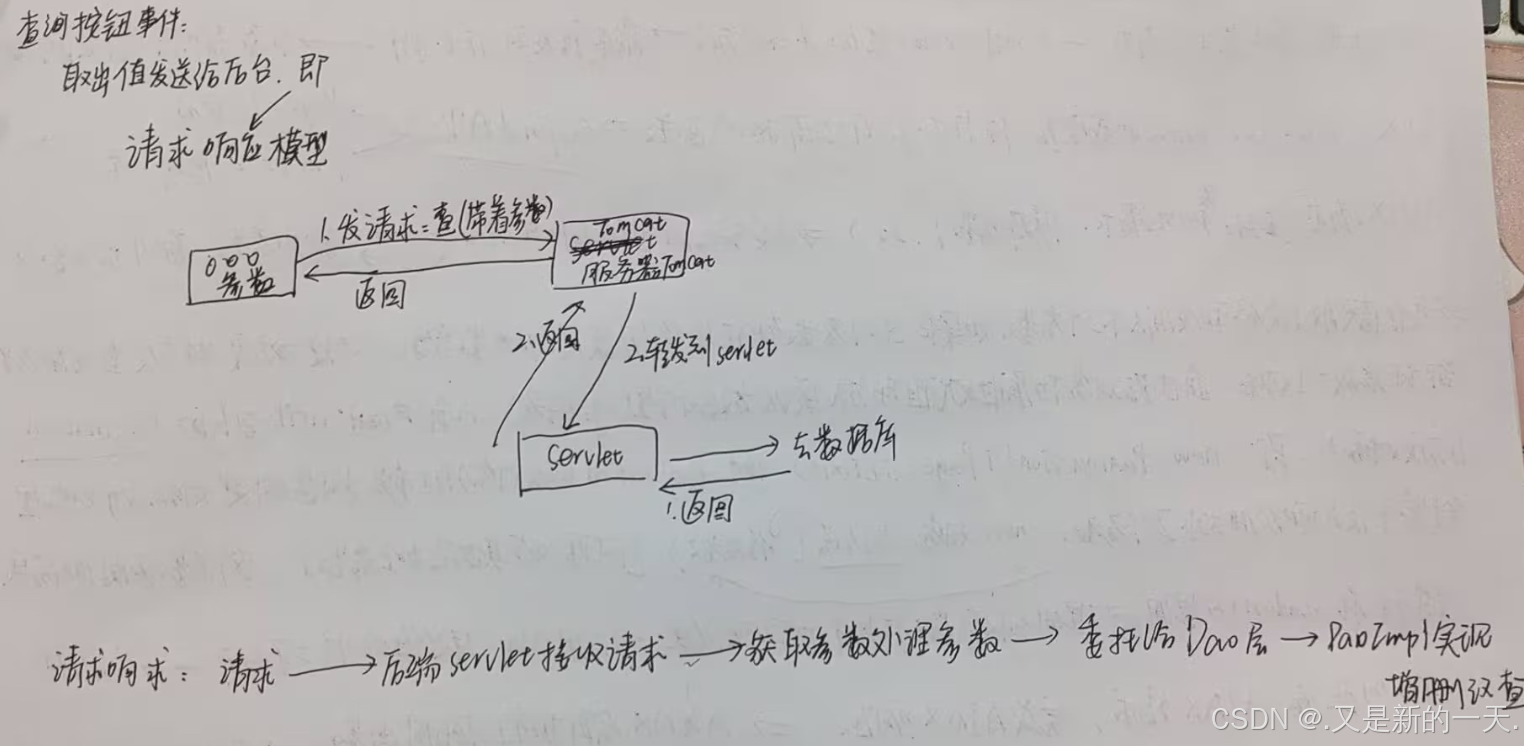 查询按钮事件:
取出值发送给后台. 即
请求响应模型
1.发请求:查(带着参数)
000
参数
返回
Tomcat
服务器Tomcat
2.返回
2.转发到servlet
servlet
去数据库
1.返回
请求响求: 请求 → 后端servlet接收请求 → 获取参数处理参数 → 委托给Dao层 → DaoImpl实现
增删改查
CSDN @.又是新的一天.